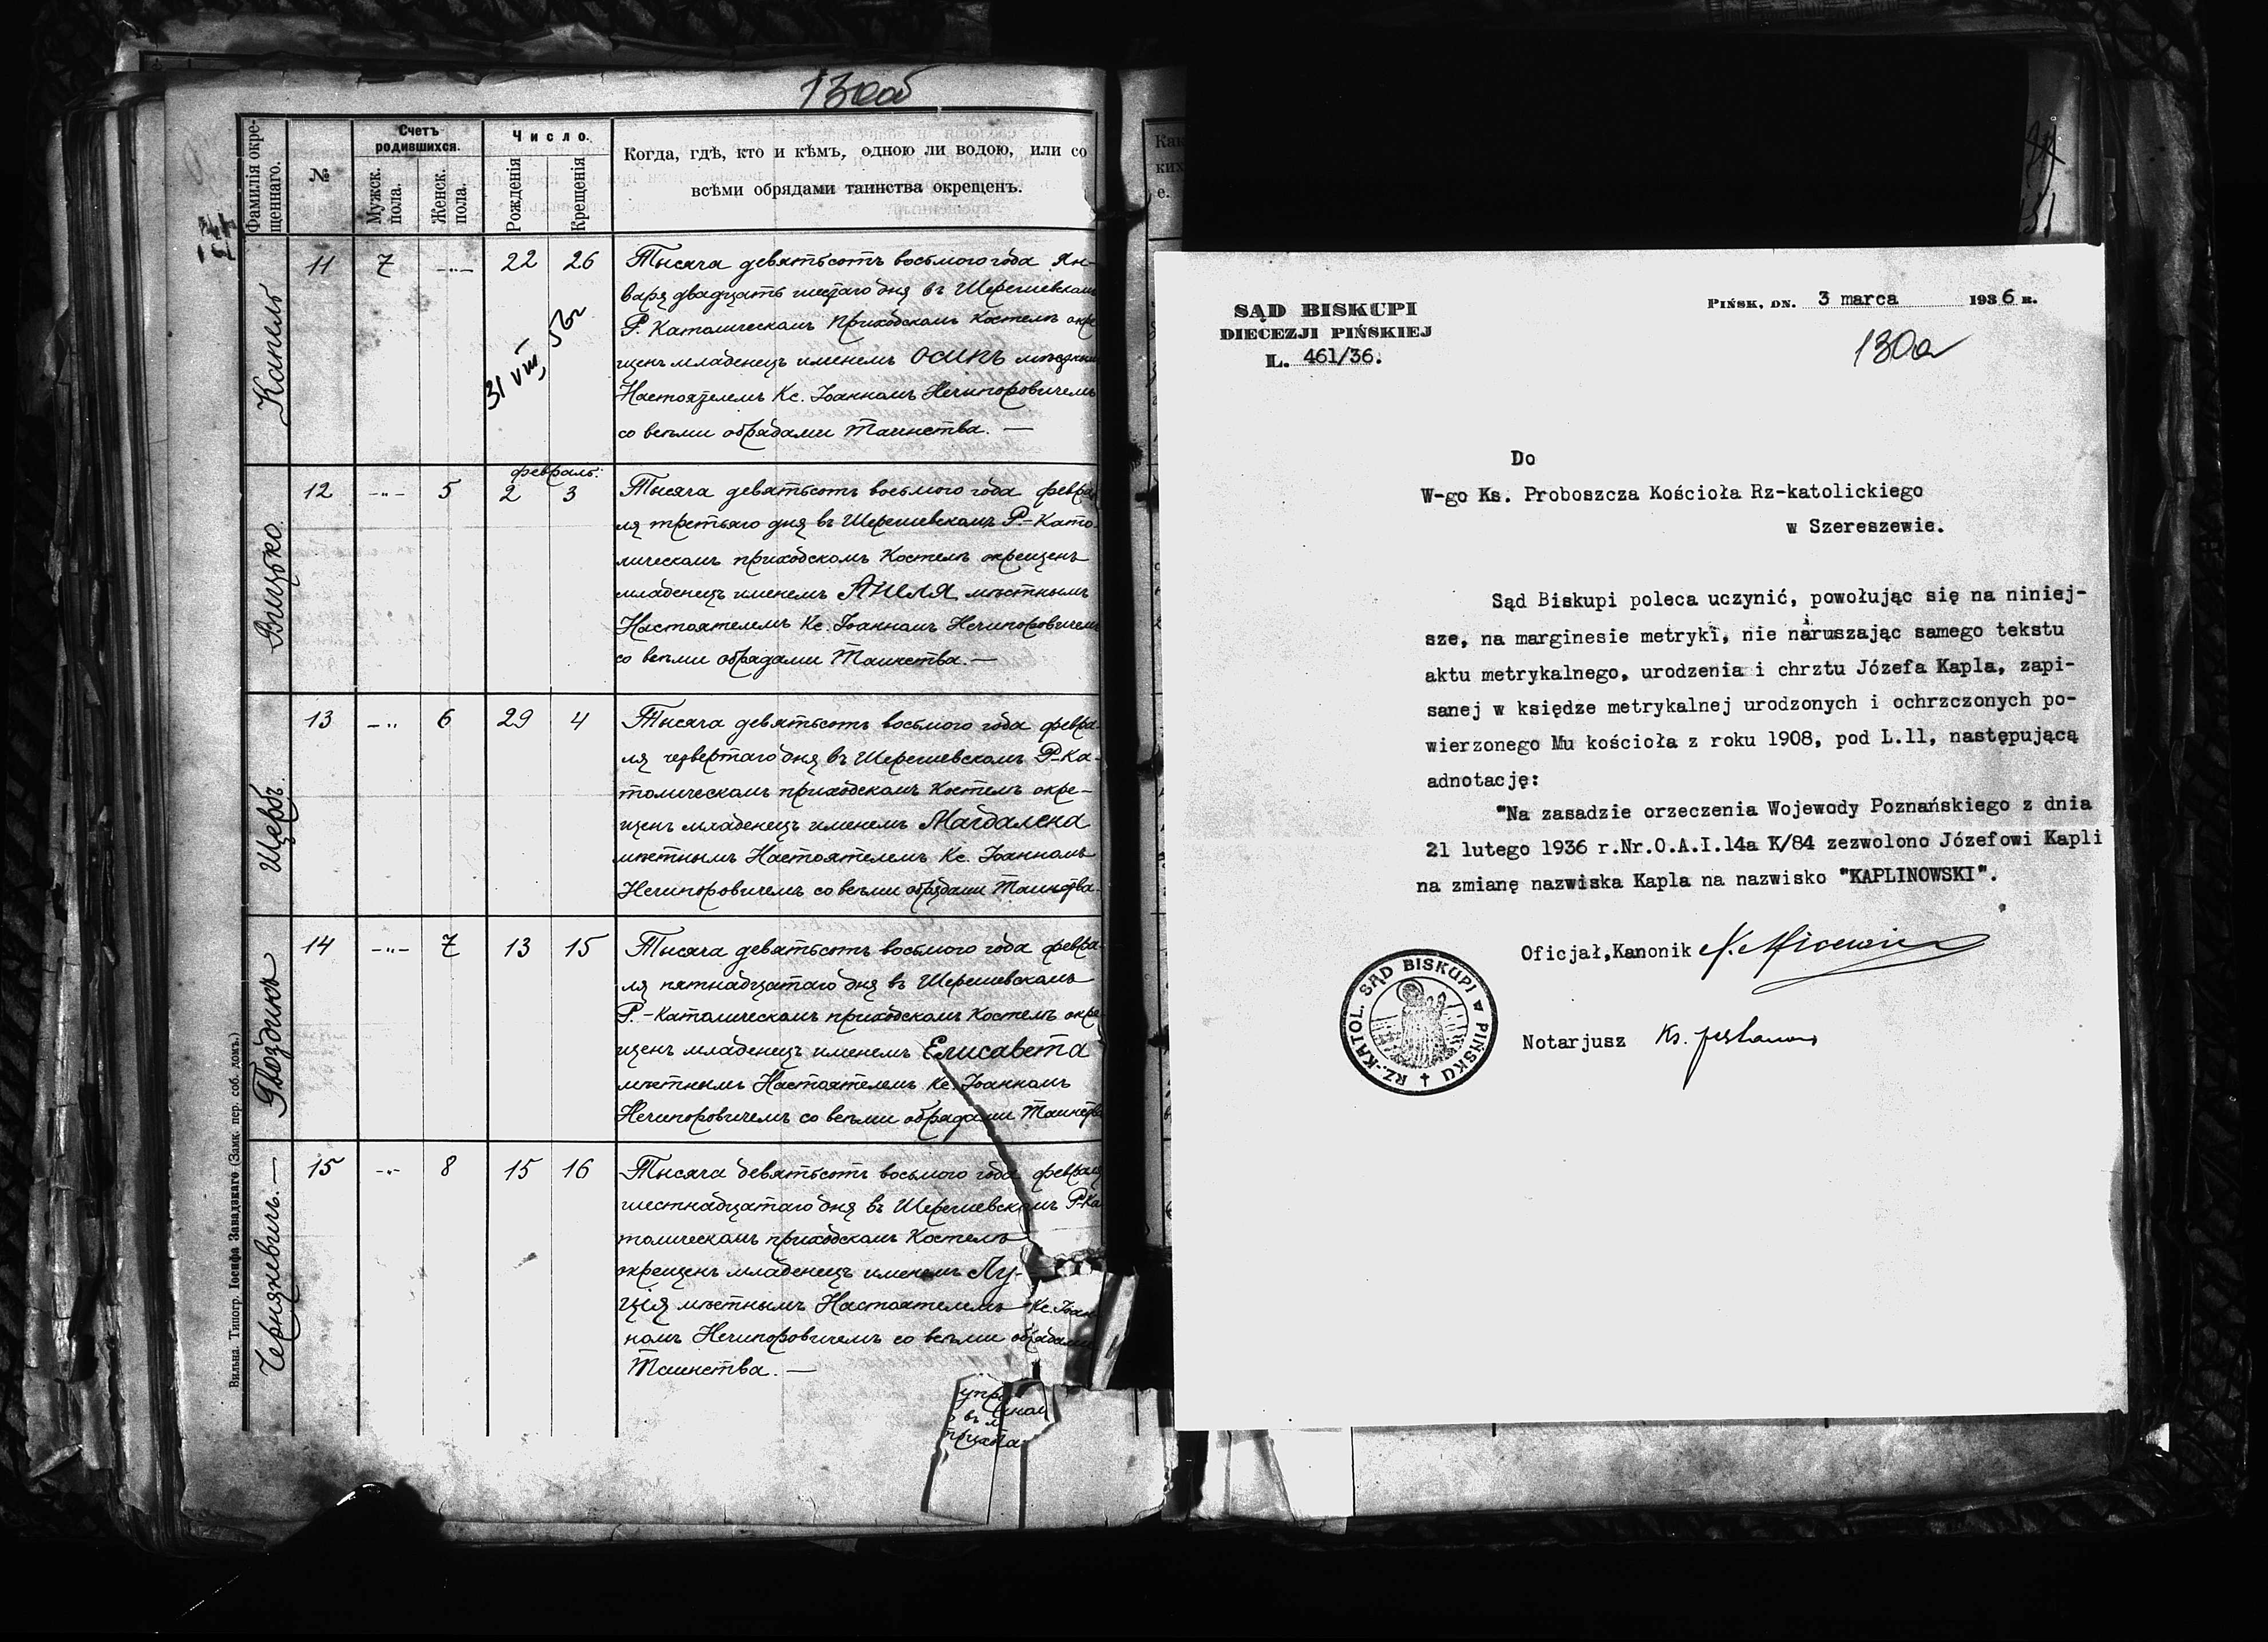 130об
Фамилія окре-
щеннаго.
№
Счетъ
родившихся.
Мужск.
пола.
Женск.
пола.
Число.
Рожденія
Крещенія
Когда, гдѣ, кто и кѣмъ, одною ли водою, или со
всѣми обрядами таинства окрещенъ.
Капель
11 7 -"- 22 26
31 VIII,
Тысяча девятьсотъ восьмого года Ян-
варя двадцать шестаго дня въ Шерешевскомъ
Р. Католическомъ Приходскомъ Костелѣ окре
щенъ младенецъ именемъ Осипъ мѣстнымъ
Настоятелемъ Кс. Іоанномъ Нечипоровичемъ
со всѣми обрядами Таинства. —
Вицько
февраль:
12 -"- 5 2 3
Тысяча девятьсотъ восьмого года февра
ля третьяго дня въ Шерешевскомъ Р.-Като-
лическомъ приходскомъ Костелѣ окрещенъ
младенецъ именемъ Анеля мѣстнымъ
Настоятелемъ Кс. Іоанномъ Нечипоровичемъ
со всѣми обрядами Таинства. —
Щербъ
13 -" 6 29 4
Тысяча девятьсотъ восьмого года февра
ля четвертаго дня въ Шерешевскомъ Р-Ка-
толическомъ приходскомъ Костелѣ окре-
щенъ младенецъ именемъ Магдалена
мѣстнымъ Настоятелемъ Кс. Іоанномъ
Нечипоровичемъ со всѣми обрядами Таинства.
Гвоздикъ
14 -"- 7 13 15
Тысяча девятьсотъ восьмого года февра-
ля пятнадцатаго дня въ Шерешевскомъ
Р.-Католическомъ приходскомъ Костелѣ окре
щенъ младенецъ именемъ Елисавета
мѣстнымъ Настоятелемъ Кс. Іоанномъ
Нечипоровичемъ со всѣми обрядами Таинства
Черняжевичъ. —
15 -"- 8 15 16
Тысяча девятьсотъ восьмого года февраля
шестнадцатаго дня въ Шерешевскомъ Р-Ка
толическомъ приходскомъ Костелѣ
окрещенъ младенецъ именемъ Лу-
ція мѣстнымъ Настоятелемъ Кс. Іоан
номъ Нечипоровичемъ со всѣми обрядами
Таинства. —
Вильна. Типогр. Іосифа Завадзкаго (Замк. пер. соб. домъ.)
SĄD BISKUPI
DIECEZJI PIŃSKIEJ
L. 461/36.
PIŃSK, DN. 3 marca 1936 R.
130a
Do
W-go Ks. Proboszcza Kościoła Rz-katolickiego
w Szereszewie.
Sąd Biskupi poleca uczynić, powołując się na niniej-
sze, na marginesie metryki, nie naruszając samego tekstu
aktu metrykalnego, urodzenia i chrztu Józefa Kapla, zapi-
sanej w księdze metrykalnej urodzonych i ochrzczonych po-
wierzonego Mu kościoła z roku 1908, pod L.11, następującą
adnotację:
"Na zasadzie orzeczenia Wojewody Poznańskiego z dnia
21 lutego 1936 r.Nr.O.A.I.14a K/84 zezwolono Józefowi Kapli
na zmianę nazwiska Kapla na nazwisko "KAPLINOWSKI".
Oficjał,Kanonik
RZ.-KATOL. SĄD BISKUPI PIŃSKU
Notarjusz Ks.